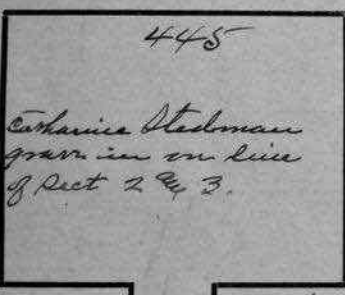 445
Catharine Stedman
grave is on line
of Sect 2 & 3.